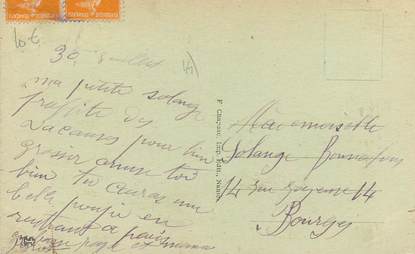 30 Juillet
ma petite solange
profite des
vacances pour bien
grossir amuse toi
bien tu auras une
belle poupée en
rentrant a paris
et maman
F. Chapeau, Imp. Edit., Nantes
Mademoiselle
Solange
14 rue 14
Bourges